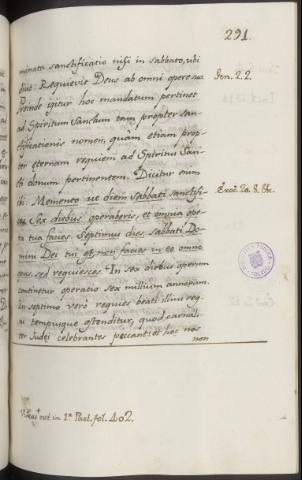 291
minata sanctificatio nisi in sabbato, ubi
dixit: Requievit Deus ab omni opere suo Gen. 2. 2.
Proinde igitur hoc mandatum pertinet
ad Spiritum Sanctum tam propter San-
ctificationis nomen, quam etiam prop-
ter eternam requiem ad Spiritus San-
cti donum pertinentem. Dicitur enim
ibi: Memento ut diem Sabbati sanctifi- Exod. 20. 8. &c.
ces. Sex diebus operaberis, et omnia ope-
ra tua facies. Septimus dies, sabbati Do-
mini Dei tui est, non facies in eo omne
opus sed requiesces. In sex diebus operum
continetur operatio sex millium annorum.
in septimo verò requies beati illius reg-
ni tempusque ostenditur, quod carnali-
ter Judei celebrantes peccant: et hoc nos
non
est in 1ª Part. fol. 402.